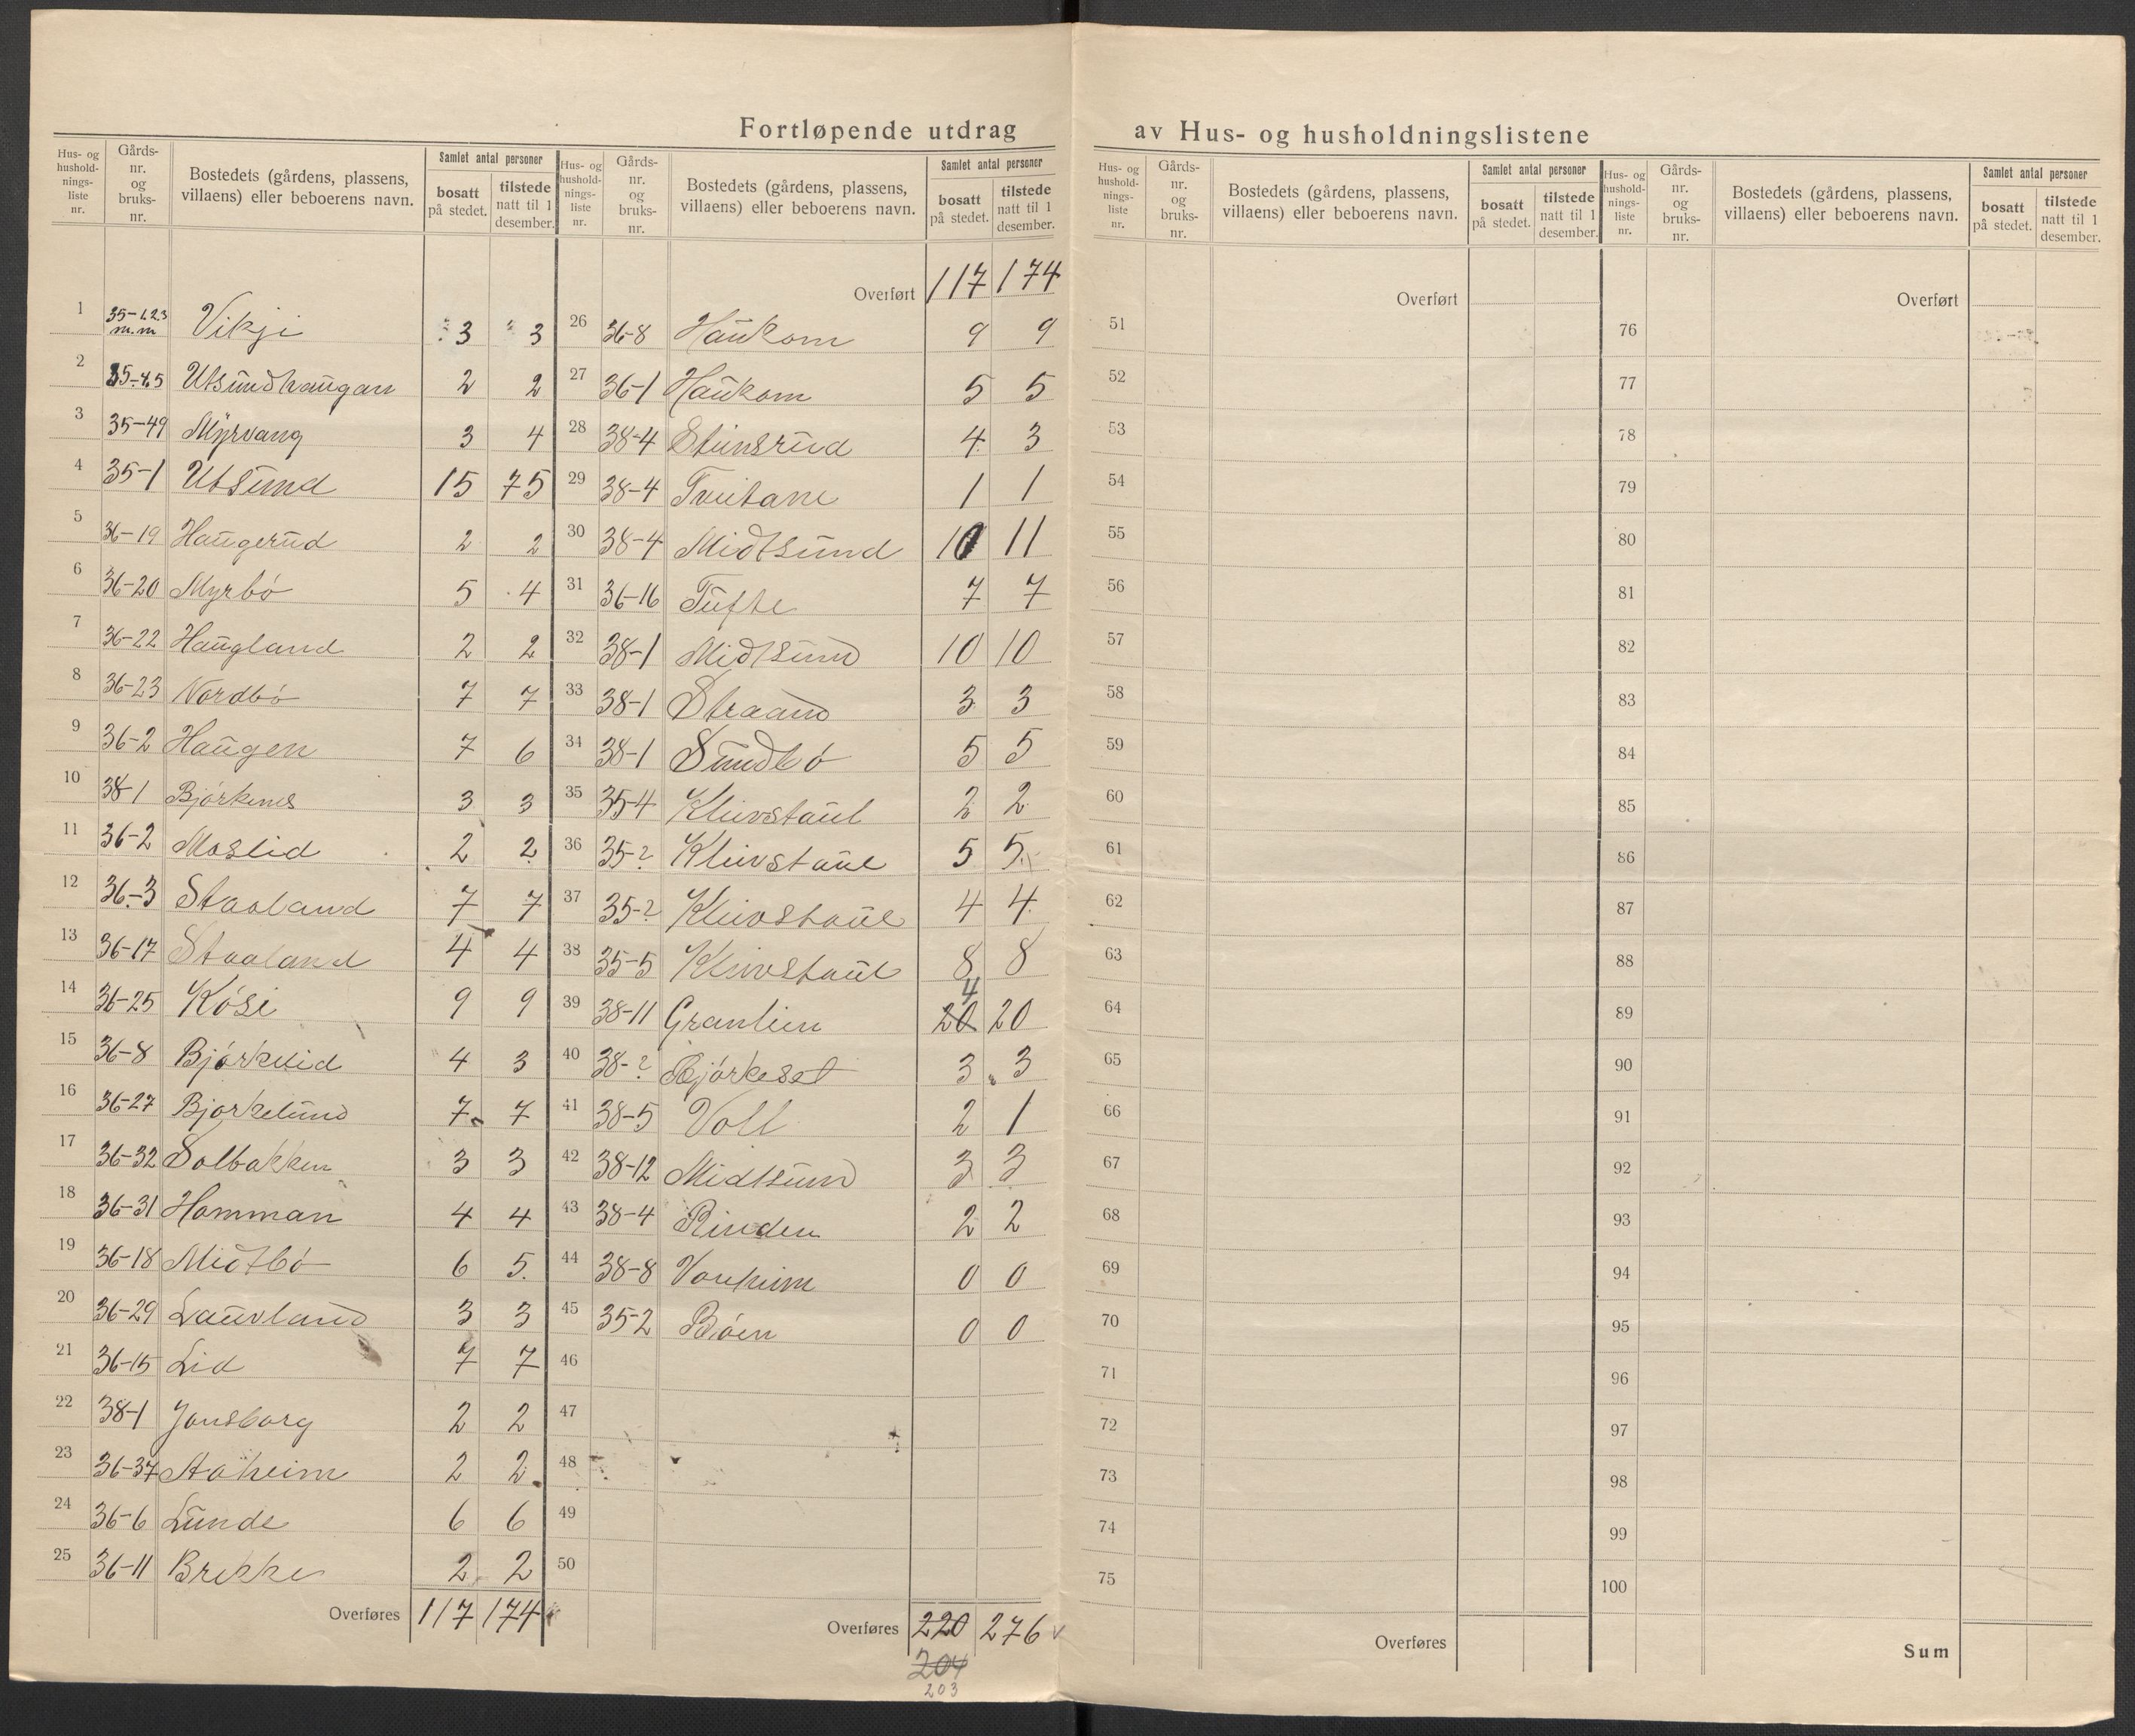 Fortløpende utdrag av Hus- og husholdningslistene
Hus- og hushold-nings-liste nr. Gårds-nr. og bruks-nr. Bostedets (gårdens, plassens, villaens) eller beboerens navn. Samlet antal personer bosatt på stedet. tilstede natt til 1 desember.
1 35-1,2,3 m.m Vikji 3 3
2 35-4,5 Utsundhaugan 2 2
3 35-49 Myrvang 3 4
4 35-1 Utsund 15 75
5 36-19 Haugerud 2 2
6 36-20 Myrbö 5 4
7 36-22 Haugland 2 2
8 36-23 Nordbö 7 7
9 36-2 Haugen 7 6
10 38-1 Björkenes 3 3
11 36-2 Moslid 2 2
12 36-3 Staaland 7 7
13 36-17 Staaland 4 4
14 36-25 Kösi 9 9
15 36-8 Björkelid 4 3
16 36-27 Bjorkelund 7 7
17 36-32 Solbakken 3 3
18 36-31 Homman 4 4
19 36-18 Midtbö 6 5
20 36-29 Lauvland 3 3
21 36-15 Lid 7 7
22 38-1 Jonsborg 2 2
23 36-37 Aaheim 2 2
24 36-6 Lunde 6 6
25 36-11 Brekke 2 2
Overføres 117 174
Hus- og hushold-nings-liste nr. Gårds-nr. og bruks-nr. Bostedets (gårdens, plassens, villaens) eller beboerens navn. Samlet antal personer bosatt på stedet. tilstede natt til 1 desember.
Overført 117 174
26 36-8 Haukom 9 9
27 36-1 Haukom 5 5
28 38-4 Steinsrud 4 3
29 38-4 Tveitane 1 1
30 38-4 Midtsund 10 11
31 36-16 Tufte 7 7
32 38-1 Midtsund 10 10
33 38-1 Straand 3 3
34 38-1 Sundbö 5 5
35 35-4 Kleivstaul 2 2
36 35-? Kleivstaul 5 5
37 35-? Kleivstaul 4 4
38 35-5 Kleivstaul 8 8
39 38-11 Granlien 20 4 20
40 38-? Björkeset 3 3
41 38-5 Voll 2 1
42 38-12 Midtsund 3 3
43 38-4 Rinden 2 2
44 38-8 Vonheim 0 0
45 35-2 Böen 0 0
46
47
48
49
50
Overføres 220 276
204
203
Hus- og hushold-nings-liste nr. Gårds-nr. og bruks-nr. Bostedets (gårdens, plassens, villaens) eller beboerens navn. Samlet antal personer bosatt på stedet. tilstede natt til 1 desember.
Overført
51
52
53
54
55
56
57
58
59
60
61
62
63
64
65
66
67
68
69
70
71
72
73
74
75
Overføres
Hus- og hushold-nings-liste nr. Gårds-nr. og bruks-nr. Bostedets (gårdens, plassens, villaens) eller beboerens navn. Samlet antal personer bosatt på stedet. tilstede natt til 1 desember.
Overført
76
77
78
79
80
81
82
83
84
85
86
87
88
89
90
91
92
93
94
95
96
97
98
99
100
Sum